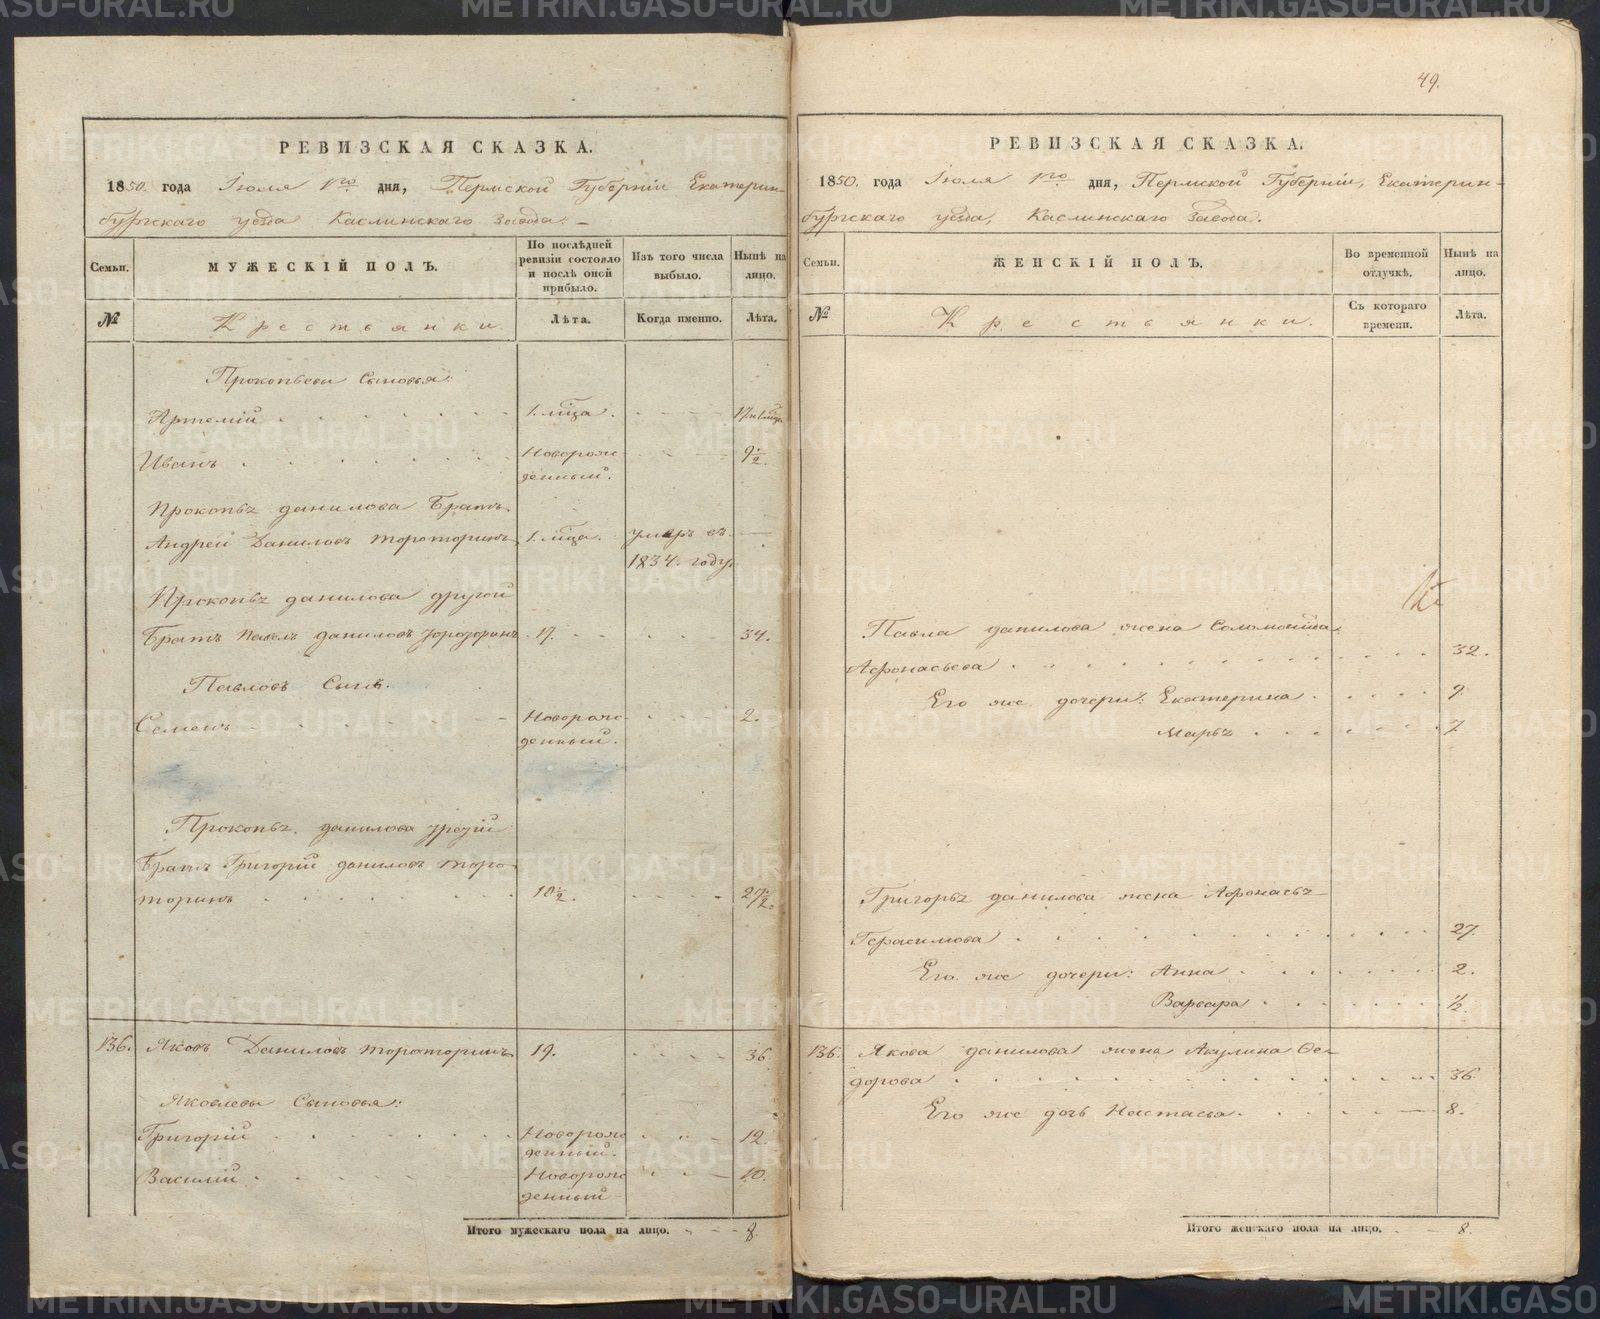 РЕВИЗСКАЯ СКАЗКА.
1850. года Іюля 1го дня, Пермской Губерніи Екатерин-
бургскаго уезда Каслинскаго Завода. –
Семьи.
МУЖЕСКІЙ ПОЛЪ.
По послѣдней ревизіи состояло и послѣ оной прибыло.
Изъ того числа выбыло.
Нынѣ на лицо.
№
Крестьянки
Лѣта.
Когда именно.
Лѣта.
Прокопьевы Сыновья:
Артемій 1. мца. 17 и 1 мца.
Иванъ Новорож- 9 1/2.
денный.
Прокопья данилова Братъ
Андрей Даниловъ Тороторинъ 1. мца. умеръ въ —
1834. году
Прокопья данилова другой
Братъ Павелъ даниловъ Тороторинъ 17. 34.
Павловъ Сынъ.
Семенъ Новорож- 2.
денный.
Прокопья данилова третій
Братъ Григорій даниловъ Торо-
торинъ 10 1/2. 27 1/2.
136. Яковъ Даниловъ Тороторинъ 19. 36.
Яковлевы Сыновья:
Григорій Новорож- 12.
денный.
Василій Новорож- 10.
денный
Итого мужескаго пола на лицо. 8.
49.
РЕВИЗСКАЯ СКАЗКА.
1850. года Іюля 1го дня, Пермской Губерніи, Екатерин-
бургскаго уезда, Каслинскаго Завода.
Семьи.
ЖЕНСКІЙ ПОЛЪ.
Во временной отлучкѣ.
Нынѣ на лицо.
№
Крестьянки.
Съ котораго времени.
Лѣта.
Павла данилова жена Соломонида
Афонасьева 32.
Его же дочери: Екатерина 9.
Марья 7.
Григорья данилова жена Афонасья
Герасимова 27.
Его же дочери: Анна 2.
Варвара 1/2.
136. Якова данилова жена Акулина Ѳе-
дорова 36.
Его же дочь Настасья. 8.
Итого женскаго пола на лицо. 8.
METRIKI.GASO-URAL.RU